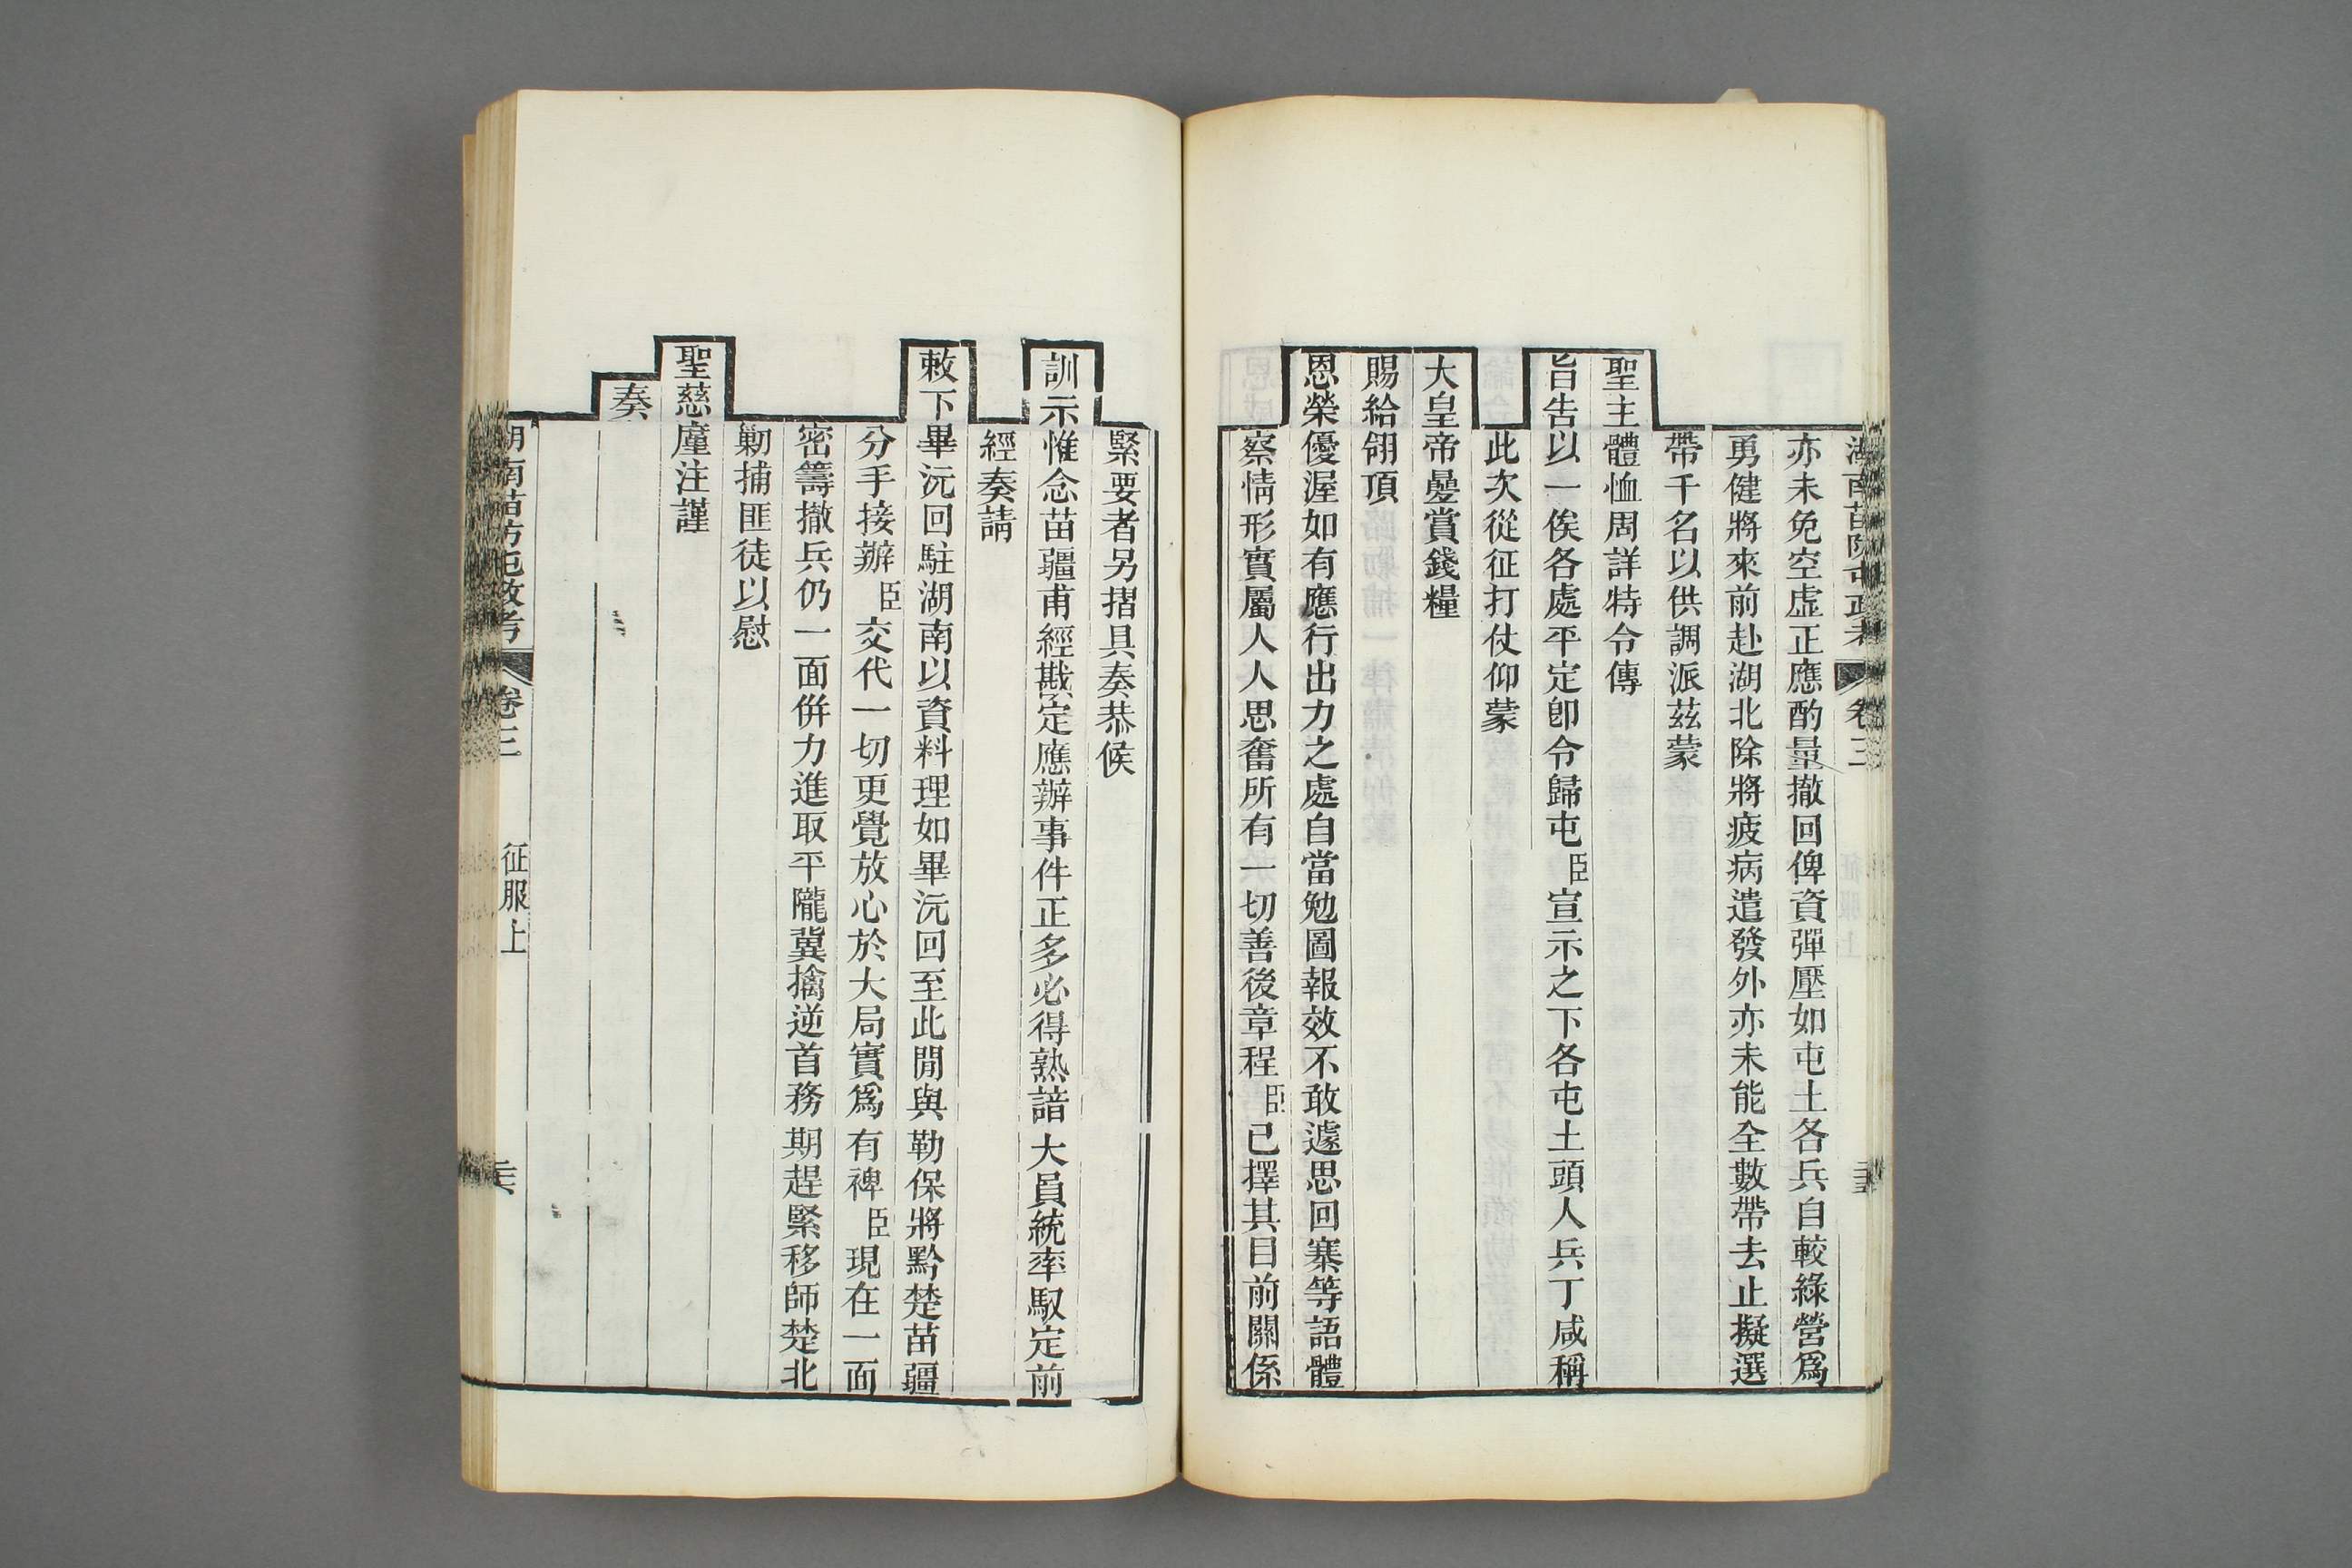 亦未免空虛正應酌量撤回俾資彈壓如屯土各兵自較綠營爲
勇健將來前赴湖北除將疲病遣發外亦未能全數帶去止擬選
帶千名以供調派茲蒙
聖主體恤周詳特令傳
旨告以一俟各處平定卽令歸屯臣宣示之下各屯土頭人兵丁咸稱
此次從征打仗仰蒙
大皇帝曡賞錢糧
賜給翎頂
恩榮優渥如有應行出力之處自當勉圖報效不敢遽思回寨等語體
察情形實屬人人思奮所有一切善後章程臣已擇其目前關係
緊要者另摺具奏恭候
訓示惟念苗疆甫經戡定應辦事件正多必得熟諳大員統率馭定前
經奏請
敕下畢沅回駐湖南以資料理如畢沅回至此間與勒保將黔楚苗疆
分手接辦臣交代一切更覺放心於大局實爲有裨臣現在一面
密籌撤兵仍一面併力進取平隴冀擒逆首務期趕緊移師楚北
勦捕匪徒以慰
聖慈廑注謹
奏
湖南苗防屯政考
卷三
征服上